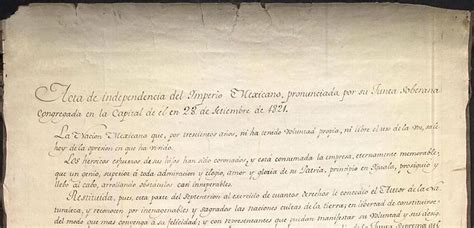 Acta de independencia del Imperio Mexicano, pronunciada por su Junta Soberana
Congregada en la Capital de el en 28 de Setiembre de 1821.
La Nacion Mexicana que, por trescientos años, ni ha tenido voluntad propia, ni libre el uso de la voz, sale
hoy de la opresion en que ha vivido.
Los heroicos esfuerzos de sus hijos han sido coronados, y está consumada la empresa, eternamente memorable,
que un genio, superior á toda admiracion y elogio, amor y gloria de su Patria, principió en Iguala, prosiguió y
llevó al cabo, arrollando obstaculos casi insuperables.
Restituida, pues, esta parte del Septentrion al exercicio de cuantos derechos le concedió el Autor de la Na-
turaleza, y reconocen por inenagenables y sagrados las naciones cultas de la tierra; en libertad de constituirse
del modo que mas convenga á su felicidad; y con representantes que puedan manifestar su voluntad y sus